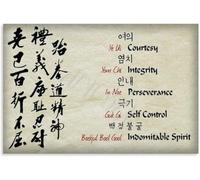 跆拳道精神
禮義廉耻忍耐
克己百折不屈
여의
Ye Ui Courtesy
염치
Yom Chi Integrity
인내
In Nae Perseverance
극기
Guk Gi Self Control
백정불굴
Baekjul Bool Gool Indomitable Spirit